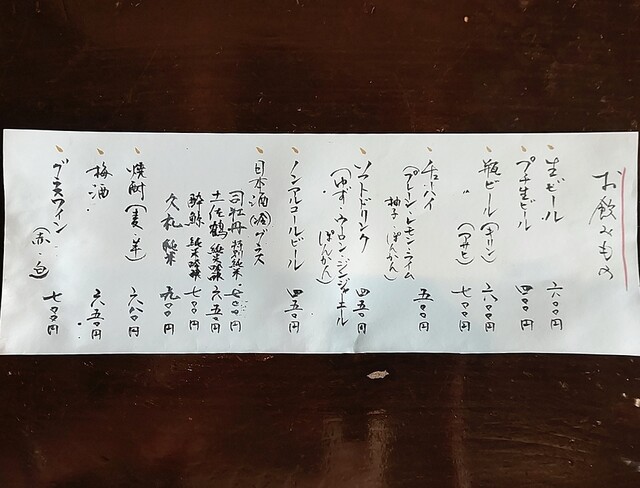 お飲みもの
生ビール 六〇〇円
プチ生ビール 四〇〇円
瓶ビール(キリン) 六〇〇円
(アサヒ) 七〇〇円
チューハイ 五〇〇円
(プレーン・レモン・ライム
柚子・ぽんかん)
ソフトドリンク 四五〇円
(ゆず・ウーロン・ジンジャーエール
ぽんかん)
ノンアルコールビール 四五〇円
日本酒(冷)グラス
司牡丹 特別純米
土佐鶴 純米吟醸 六五〇円
酔鯨 純米吟醸 七〇〇円
久礼 純米 九〇〇円
焼酎(麦・芋) 六〇〇円
梅酒 六五〇円
グラスワイン(赤・白) 七〇〇円